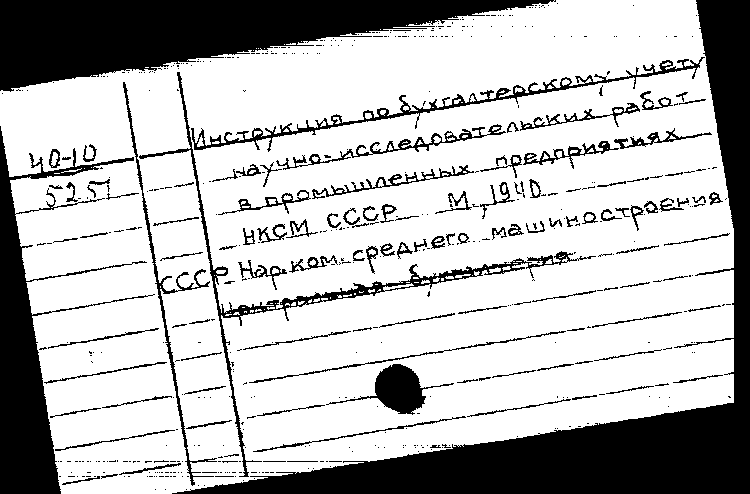 40-10
5251
Инструкция по бухгалтерскому учету
научно-исследовательских работ
в промышленных предприятиях
НКСМ СССР М, 1940
СССР. Нар.ком. среднего машиностроения
Центральная бухгалтерия